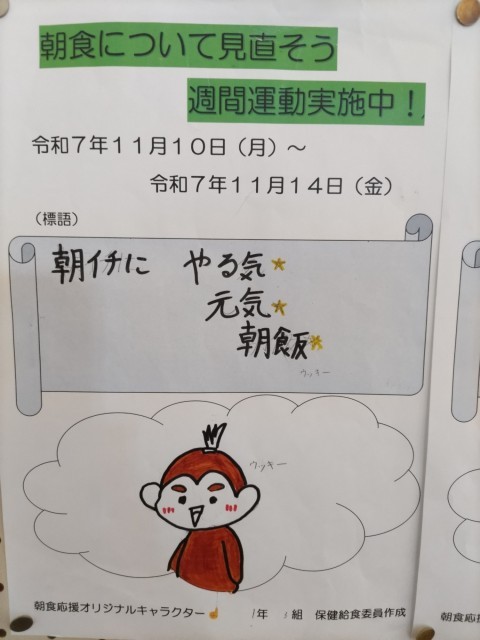 朝食について見直そう
週間運動実施中!
令和7年11月10日(月)~
令和7年11月14日(金)
(標語)
朝イチに やる気★
元気★
朝飯★
ウッキー
ウッキー
朝食応援オリジナルキャラクター 1年 組 保健給食委員作成
朝食応援